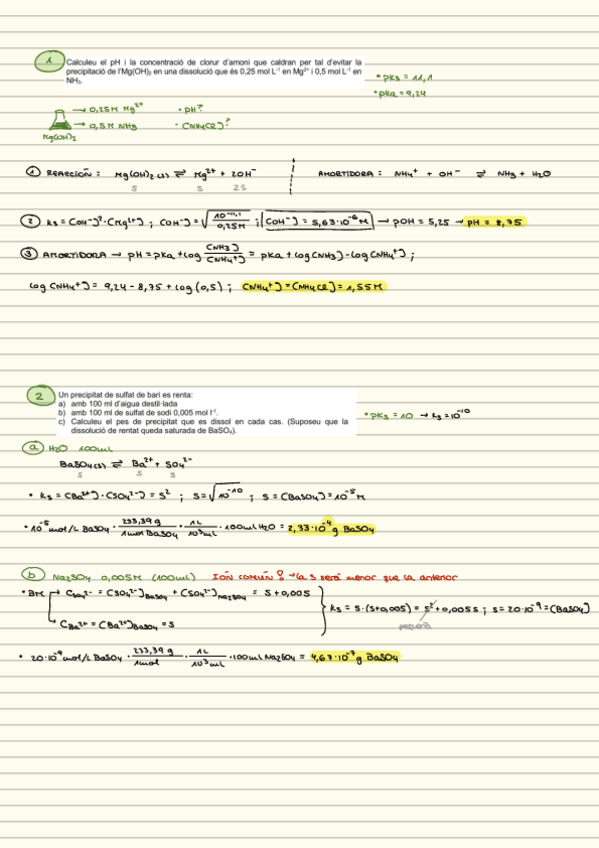 1
Calculeu el pH i la concentració de clorur d'amoni que caldran per tal d'evitar la
precipitació de l'Mg(OH)₂ en una dissolució que és 0,25 mol L⁻¹ en Mg²⁺ i 0,5 mol L⁻¹ en
NH₃.
• pKs = 11,1
• pKa = 9,24
→ 0,25M Mg²⁺ • pH?
→ 0,5M NH₃ • [NH₄Cl]?
Mg(OH)₂
① REACCIÓN: Mg(OH)₂ (s) ⇌ Mg²⁺ + 2OH⁻ AMORTIDORA: NH₄⁺ + OH⁻ ⇌ NH₃ + H₂O
S S 2S
② Ks = [OH⁻]² · [Mg²⁺] ; [OH⁻] = √(10⁻¹¹'¹ / 0,25M) ; [OH⁻] = 5,63·10⁻⁶ M → pOH = 5,25 → pH = 8,75
③ AMORTIDORA → pH = pKa + log [NH₃] / [NH₄⁺] = pKa + log [NH₃] - log [NH₄⁺] ;
log [NH₄⁺] = 9,24 - 8,75 + log (0,5) ; [NH₄⁺] = [NH₄Cl] = 1,55M
2
Un precipitat de sulfat de bari es renta:
a) amb 100 ml d'aigua destil·lada
b) amb 100 ml de sulfat de sodi 0,005 mol l⁻¹.
c) Calculeu el pes de precipitat que es dissol en cada cas. (Suposeu que la
dissolució de rentat queda saturada de BaSO₄).
• PKs = 10 → Ks = 10⁻¹⁰
ⓐ H₂O 100ml
BaSO₄ (s) ⇌ Ba²⁺ + SO₄²⁻
S S S
• Ks = [Ba²⁺] · [SO₄²⁻] = S² ; S = √10⁻¹⁰ ; S = [BaSO₄] = 10⁻⁵ M
• 10⁻⁵ mol/L BaSO₄ · 233,39 g / 1mol BaSO₄ · 1L / 10³ ml · 100ml H₂O = 2,33·10⁻⁴ g BaSO₄
ⓑ Na₂SO₄ 0,005M (100ml) IÓN COMÚN! → la S será menor que la anterior
• BM → C SO₄²⁻ = [SO₄²⁻]BaSO₄ + [SO₄²⁻]Na₂SO₄ = S + 0,005
C Ba²⁺ = [Ba²⁺]BaSO₄ = S
Ks = S · (S + 0,005) = S² + 0,005S ; S = 20·10⁻⁹ = [BaSO₄]
pequeña
• 20·10⁻⁹ mol/L BaSO₄ · 233,39 g / 1mol · 1L / 10³ ml · 100ml Na₂SO₄ = 4,67·10⁻⁷ g BaSO₄